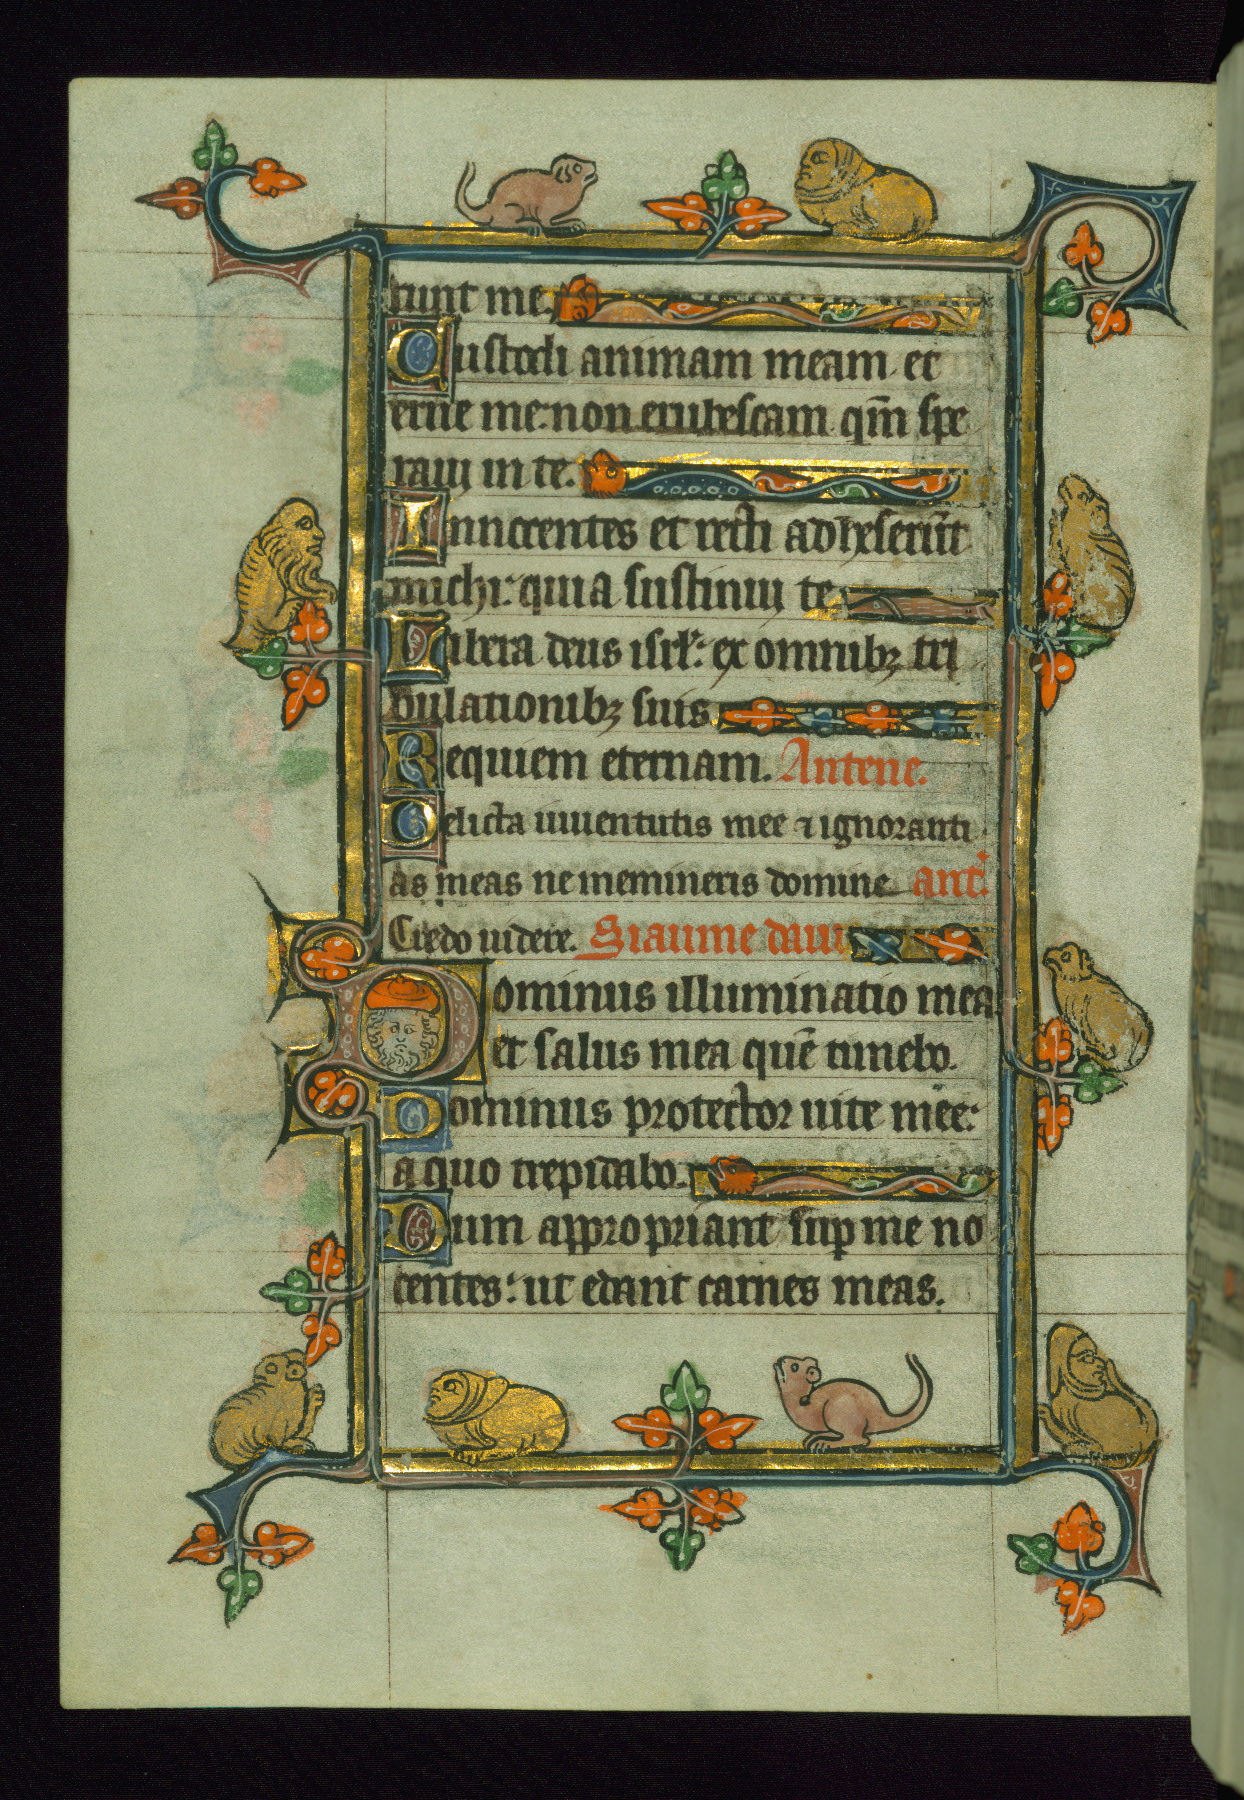 runt me.
Custodi animam meam et
erue me: non erubescam qm̄ spe
raui in te.
Innocentes et recti adheserūt
michi: quia sustinui te
Libera deus isrl': ex omnibꝫ tri
bulationibꝫ suis
Requiem eternam. Antene.
Delicta iuuentutis mee ⁊ ignoranti
as meas ne memineris domine ant'.
Credo uidere. Siaume daui
Dominus illuminatio mea
et salus mea quē timebo.
Dominus protector uite mee:
a quo trepidabo.
Dum appropriant sup me no
centes: ut edant carnes meas.